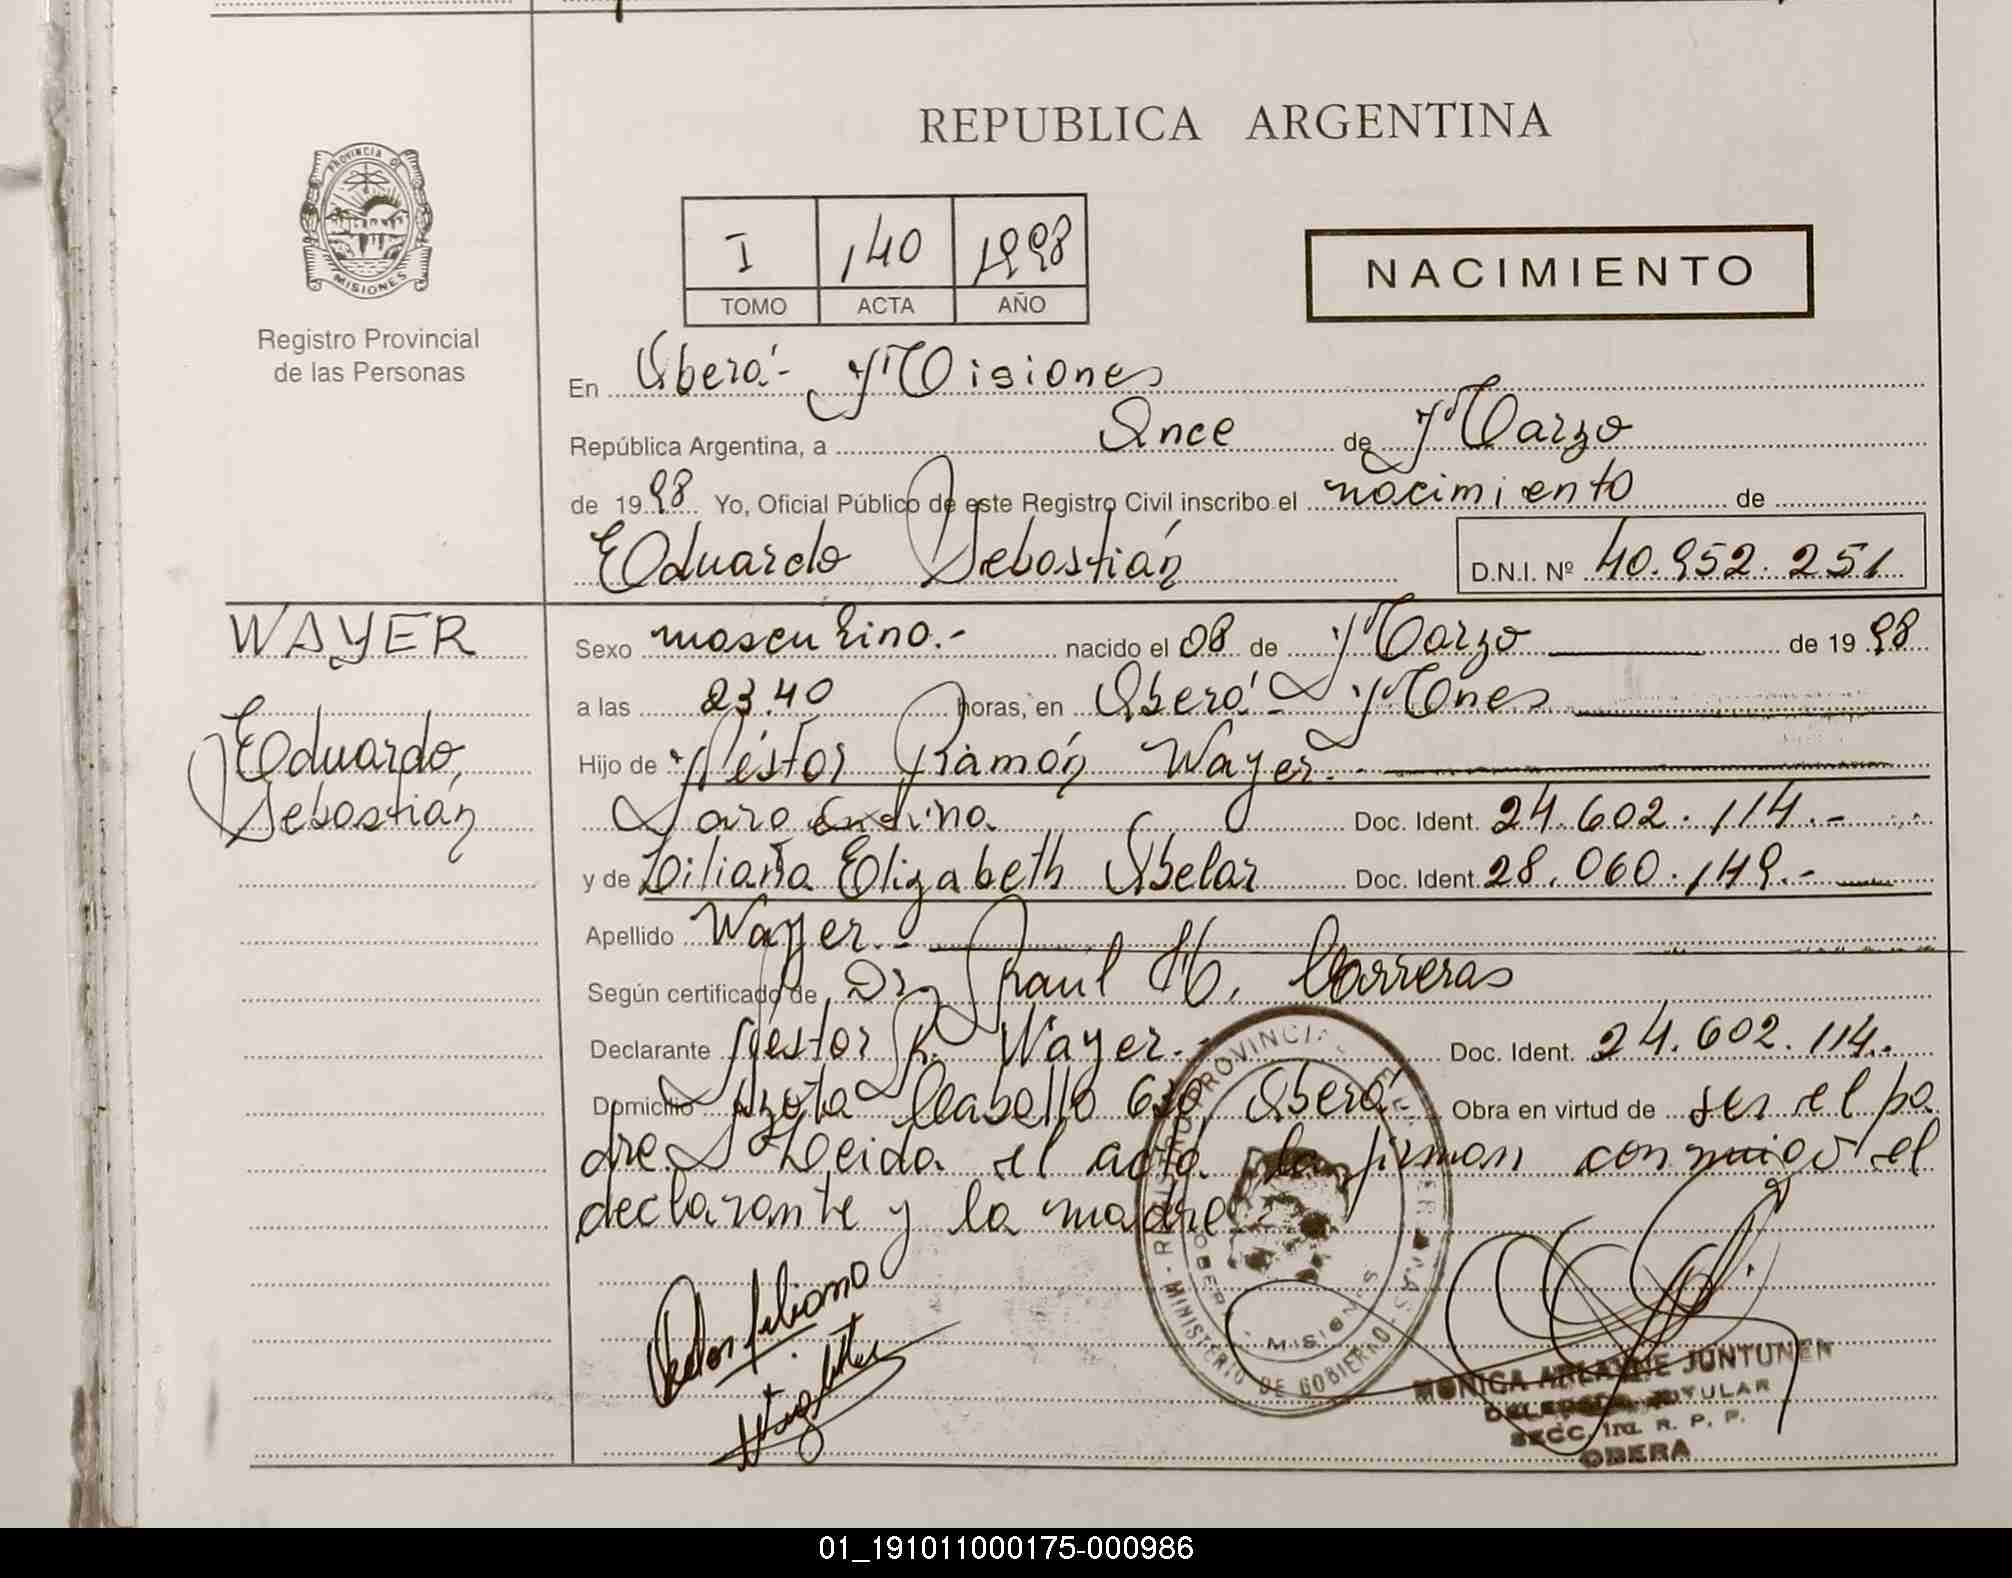 REPUBLICA ARGENTINA
PROVINCIA DE
MISIONES
Registro Provincial
de las Personas
I 140 1998
TOMO ACTA AÑO
NACIMIENTO
En Oberá.- Misiones
República Argentina, a Once de Marzo
de 1998 Yo, Oficial Público de este Registro Civil inscribo el nacimiento de
Eduardo Sebastián D.N.I. Nº 40.952.251
WAYER
Eduardo,
Sebastián
Sexo masculino.- nacido el 08 de Marzo de 1998
a las 23.40 horas, en Oberá- Mones
Hijo de Néstor Ramón Wayer.
Doc. Ident. 24.602.114.-
y de Liliana Elizabeth Obelar Doc. Ident. 28.060.149.-
Apellido Wayer.-
Según certificado de Dr. Raul H. Carreras
Declarante Néstor R. Wayer.- Doc. Ident. 24.602.114.
Domicilio Caballo 630 Oberá.- Obra en virtud de ser el pa
dre. Leida el acta la firman conmigo el
declarante y la madre
MINISTERIO DE GOBIERNO
MISIONES
MONICA ARLAYNE JUNTUNEN
DELEGADA TITULAR
SECC. 1ra. R. P. P.
OBERA
01_191011000175-000986